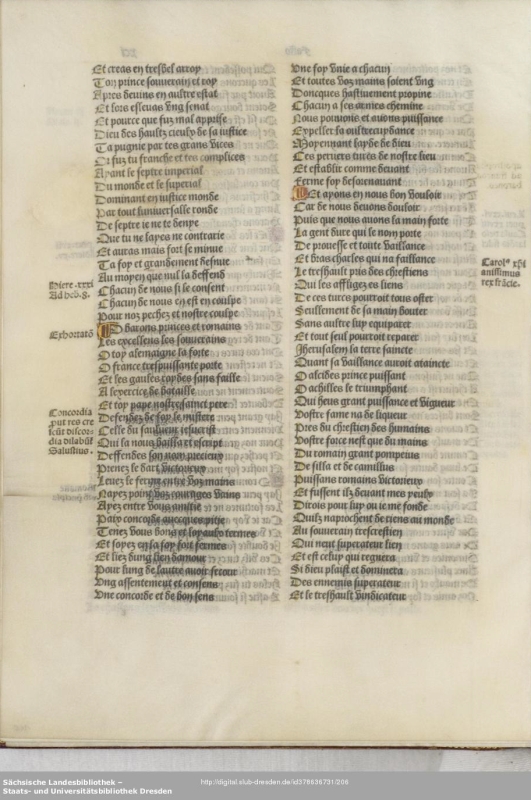 Et creas en tresbel arroy
Ton prince souverain et roy
Apres devins en aultre estat
Et lors esleuas vng senat
Et pource que fuz mal apprise
Dieu des haultz cieulx de sa iustice
Ta pugnie par tes grans vices
Or fuz tu franche et tes complices
Ayant le septre imperial
Du monde et le superial
Dominant en iustice monde
Par tout luniuerfalle ronde
De septre ie ne te denye
Que tu ne layes ne contrarie
Et auras mais fort se minue
Ta foy et grandement desnue
Au moyen que nul la deffend
Chacun de nous si le consent
Chacun de nous en est en coulpe
Pour noz pechez et nostre coulpe
O barons princes et romains
Les excellens les souuerains
O toy alemaigne la forte
O france trespuissante porte
Et les gaules roydes sans faille
A lexercice de bataille
Et toy pape nostre sainct pere
Deffendez de foy le mistere
Celle du saulueur iesucrist
Qui la nous bailla et escript
Deffendes son nom precieux
Prenez le dart victorieux
Leuez le ferme entre voz mains
Nayez point voz courages vains
Ayez entre vous amitie
Paix concorde auecques pitie
Tenez vous bons et loyaulx termes
Et soyez en la foy fort fermes
Et liez dung lien damour
Pour lung de lautre auoir secour
Vng assentement et consens
Vne concorde et de bon sens
Hiere .xxxi
Ad heb .8.
Exhortatõ
Concordia
put res cre
scũt discor-
dia dilabũt
Salustius.
Vne foy vnie a chacun
Et toutes voz mains soient vng
Doncques hastiuement propine
Chacun a ses armes chemine
Nous pouuons et auons puissance
Expeller sa oultrecuydance
Moyennant layde de dieu
Ces peruers turcs de nostre lieu
Et establir comme deuant
Ferme foy desorenauant
Et ayons en nous bon vouloir
Car de nous deuons douloir
Puis que nous auons la main forte
La gent dure qui le nom porte
De prouesse et toute vaillance
Et bras charles qui na faillance
Le treshault pris des chrestiens
Qui les affligez es liens
De ces turcs pourroit tous oster
Seullement de sa main bouter
Sans aultre luy equiparer
Et tout seul pourroit reparer
Iherusalem la terre saincte
Quant sa vaillance auroit ataincte
O alcides prince puissant
O achilles le triumphant
Qui heus grant puissance et vigueur
Vostre fame na de liqueur
Pres du chrestien des humains
Vostre force nest que du mains
Du romain grant pompeius
De silla et de camillus
Puissans romains victorieux
Et fussent ilz deuant mes yeulx
Dirois pour luy ou ie me fonde
Quilz naprochent de riens au monde
Au souuerain trescrestien
Qui neut superateur rien
Et est celuy qui regnera
Si dieu plaist et dominera
Des ennemis superateur
Et le treshault vindicateur
Carolꝰ xp̃i
anissimus
rex frãcie.
Sächsische Landesbibliothek –
Staats- und Universitätsbibliothek Dresden
http://digital.slub-dresden.de/id378636731/206